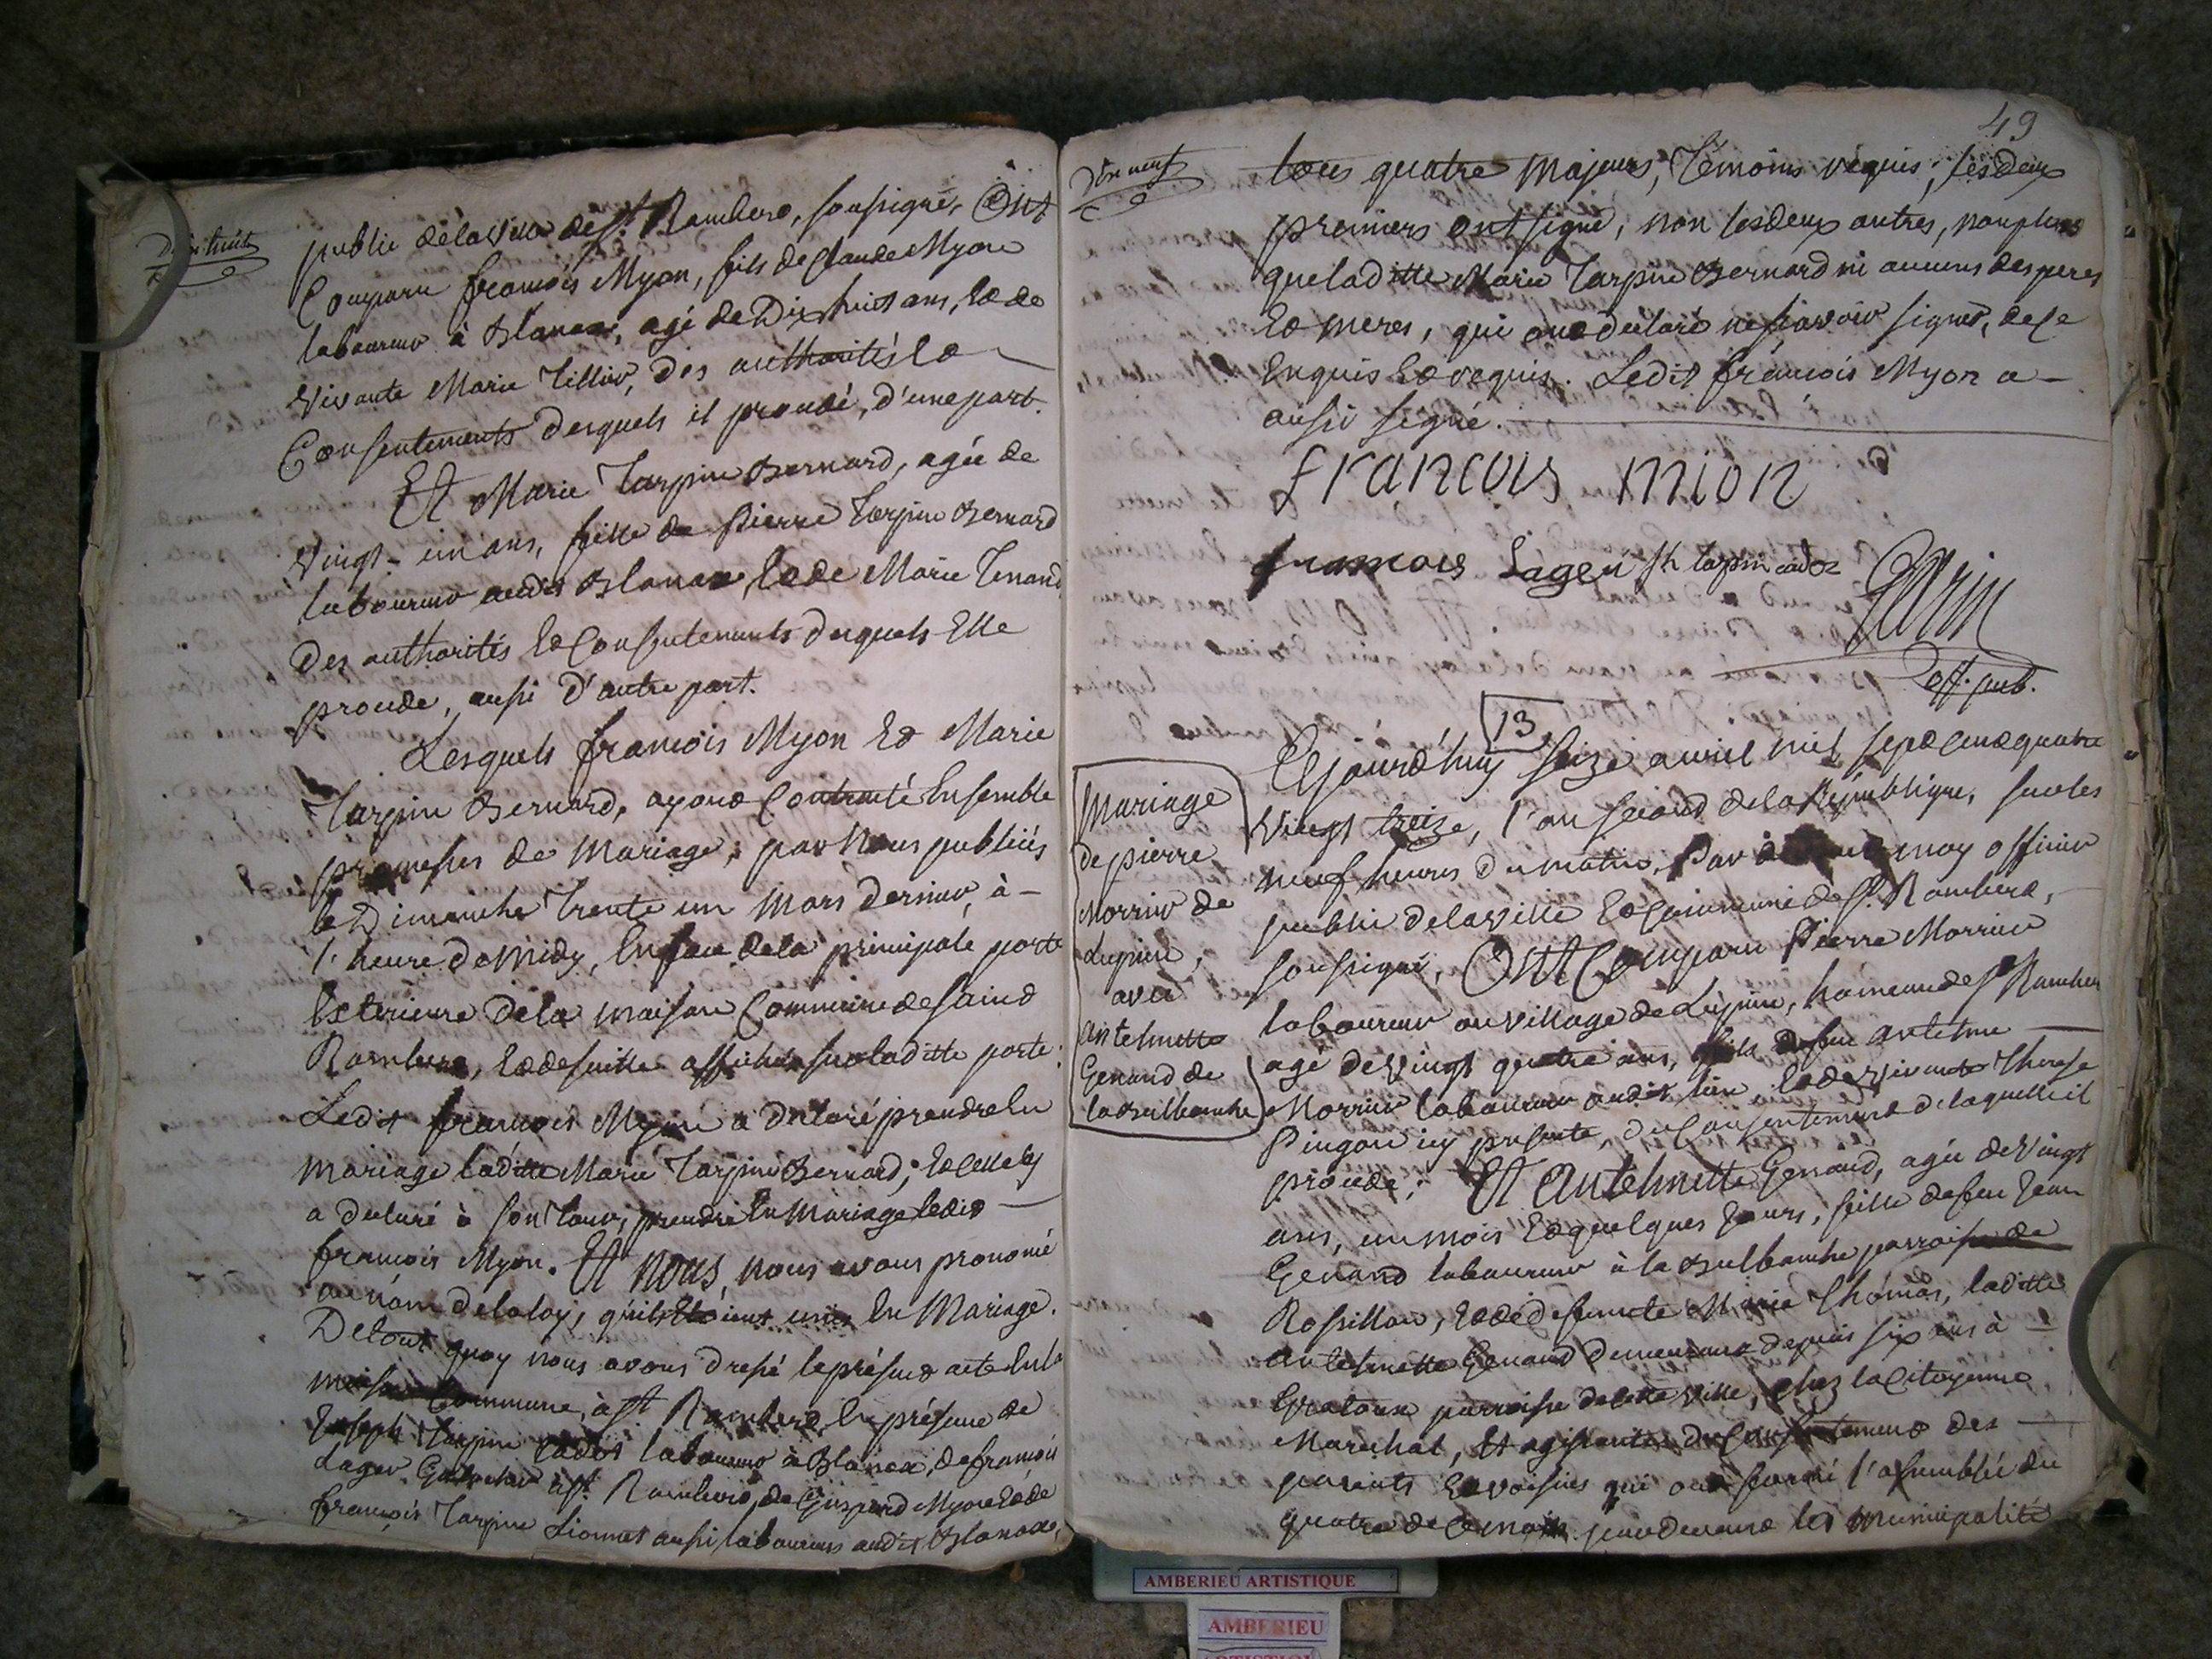 Dix huit
public de la Ville de St. Rambert, soussigné, Ont
Comparu françois Myon, fils de Claude Myon
laboureur à Blanaz, agé de Dix huit ans, Et de
Vivante Marie Tillier, des authorités Et
Consentements desquels il procède, d'une part.
Et Marie Tarpin Bernard, agée de
Vingt-un ans, fille de Pierre Tarpin Bernard
laboureur audit Blanaz, Et de Marie Tenand
Des authorités Et Consentements desquels Elle
procède, aussi d'autre part.
Lesquels françois Myon Et Marie
Tarpin Bernard, ayant Contracté Ensemble
promesses de Mariage, par Nous publiées
le Dimanche Trente un Mars dernier, à
l'heure de Midy, En face de la principale porte
Exterieure de la maison Commune de Saint
Rambert, Et de suitte affichées sur laditte porte:
Ledit françois Myon a declaré prendre En
Mariage laditte Marie Tarpin Bernard; Et Celle cy
a declaré à son tour, prendre En Mariage ledit
françois Myon. Et Nous, nous avons prononcé
au nom de la loy, qu'ils Etoient unis En Mariage.
De tout quoy nous avons dressé le présent acte En la
maison Commune, à St. Rambert, En présence de
Joseph Tarpin Cadet laboureur à Blanaz, de françois
Lager à St. Rambert, de Gaspard Myon Et de
françois Tarpin Lionnet aussi laboureurs audit Blanaz,
49
Dix neuf
tous quatre Majeurs, Témoins requis; les deux
premiers ont signé, non les deux autres, non plus
que laditte Marie Tarpin Bernard ni aucuns des peres
Et meres, qui ont declaré ne sçavoir signer, de ce
Enquis Et requis. Ledit françois Myon a
aussi signé.
francois mion
francois Lager Jh tarpin cadet
off. pub.
13
Mariage
de pierre
Morrier de
Lupieu,
avec
antelmette
Genand de
la Bulbanche
Cejourd'huy Seize avril mil sept cent quatre
Vingt treize, l'an second de la République, sur les
neuf heures du matin, Par moy officier
public de la Ville Et Commune de St. Rambert,
soussigné, Ont Comparu Pierre Morrier
laboureur au village de Lupieu, hameau de St Rambert
agé de Vingt quatre ans, fils de feu antelme
Morrier laboureur audit lieu, Et de Vivante Therese
Pingon icy présente, du Consentement de laquelle il
procède; Et Antelmette Genand, agée de Vingt
ans, un mois Et quelques jours, fille de feu Jean
Genand laboureur à la Bulbanche parroisse de
Rossillon, Et de defunte Marie Thomas, laditte
antelmette Genand demeurant depuis six ans à
parroisse de cette Ville, chez la Citoyenne
Marechal, Et agissante du Consentement des
parents Et voisins qui ont formé l'assemblée du
quatre de ce mois pardevant la Municipalité
AMBERIEU ARTISTIQUE
AMBERIEU
ARTISTIQUE